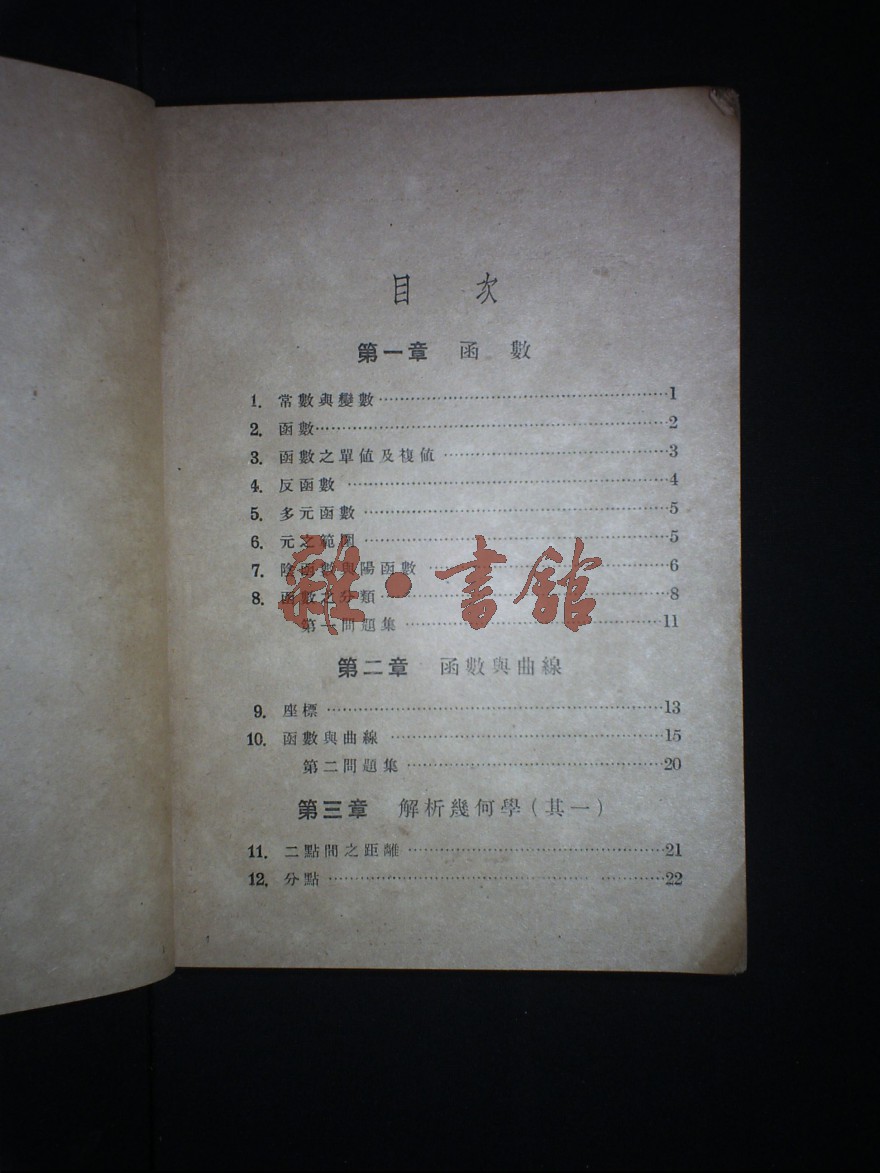 目 次
第一章 函 數
1. 常數與變數 1
2. 函數 2
3. 函數之單值及複值 3
4. 反函數 4
5. 多元函數 5
6. 元之範圍 5
7. 陰函數與陽函數 6
8. 函數之分類 8
第一問題集 11
雜·書館
第二章 函數與曲線
9. 座標 13
10. 函數與曲線 15
第二問題集 20
第三章 解析幾何學(其一)
11. 二點間之距離 21
12. 分點 22